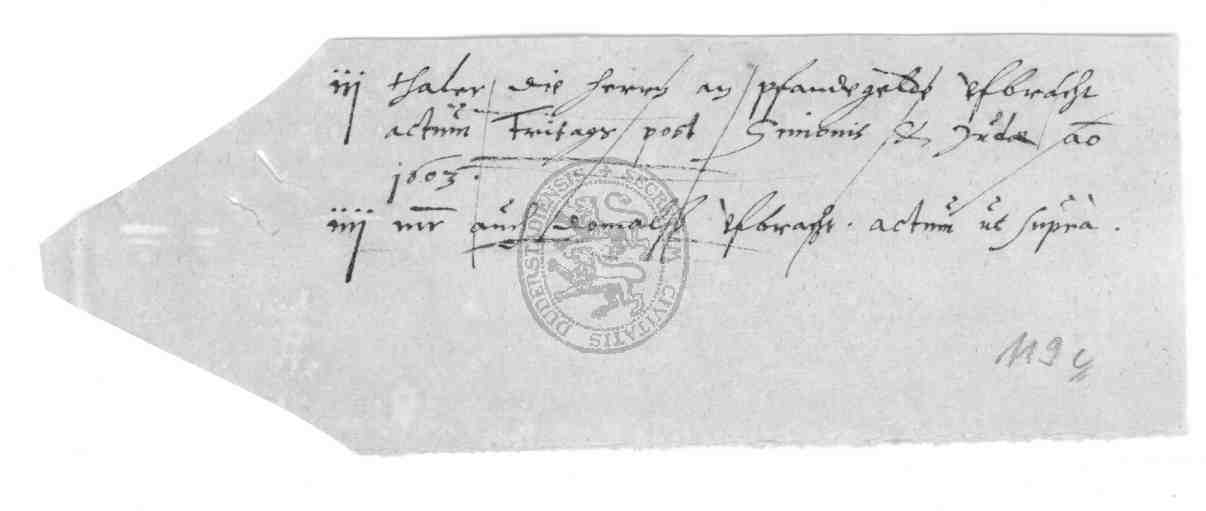 iij thaler die herrn an pfandegelde vfbracht
actum Fritags post Simonis & Judae ao
1603.
iiij mr auch domalss vfbracht. actum ut supra.
SECRETUM CIVITATIS DUDERSTADENSIS
119 c